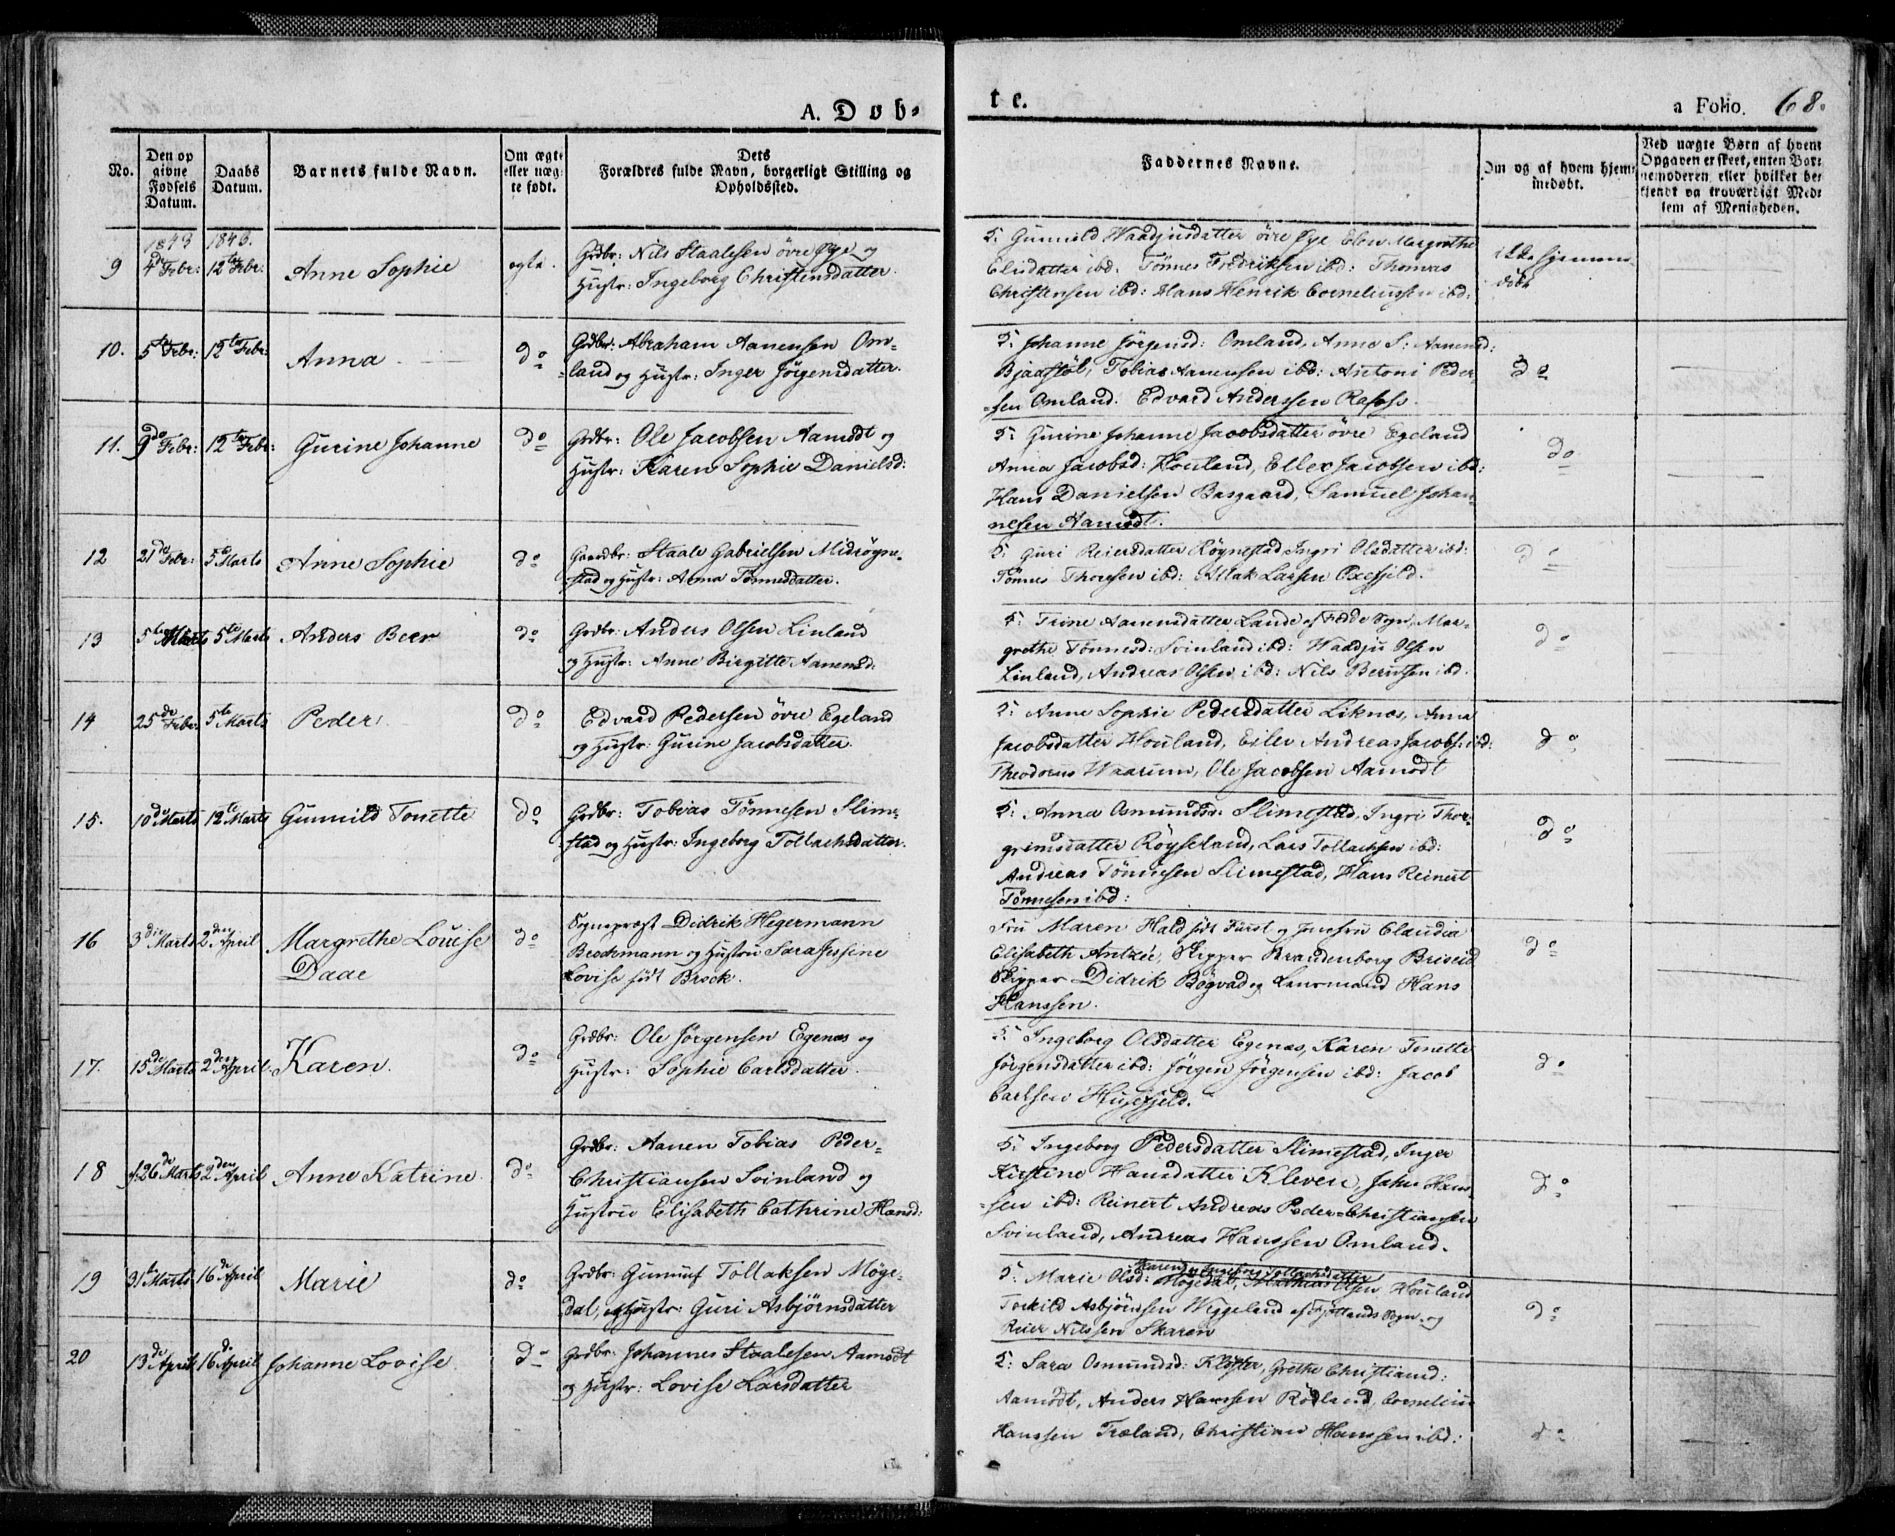 A. Døb-
te.
a Folio. 68.
No.
Den op
givne
Fødsels
Datum.
Daabs
Datum.
Barnets fulde Navn.
Om ægte
eller uæg-
te født.
Dets
Forældres fulde Navn, borgerlige Stilling og
Opholdssted.
Faddernes Navne.
Om og af hvem hjem-
medøbt.
Ved uægte Børn af hvem
Opgaven er skeet, enten Bar-
nemoderen eller hvilket be-
kjendt og troværdigt Med-
lem af Menigheden.
1843 1843.
9 4de Febr: 12te Febr: Anne Sophie ægte.
Grdbr: Nils Staalesen øvre Øye og
Hustr: Ingeborg Christensdatter.
F: Gunnild Waadjusdatter øvre Øye Elen Margrethe
Elisdatter ibd: Tönnes Fredriksen ibd: Thomas
Christensen ibd: Hans Henrik Corneliussen ibd:
ikke hjemme
döbt
10. 5te Febr: 12te Febr: Anna do
Grdbr: Abraham Aanensen Om-
land og Hustr: Inger Jörgensdatter.
F: Johanne Jörgensd: Omland, Anna S: Aanensd:
Bjaastöl, Tobias Aanensen ibd: Antoni Peder-
sen Omland. Edvard Anderssen Rafoss.
do
11. 9de Febr: 12te Febr: Gurine Johanne do
Grdbr: Ole Jacobsen Aamodt og
Hustr: Karen Sophie Danielsd:
F: Gurine Johanne Jacobsdatter övre Egeland
Anna Jacobsd: Houland, Eller Jacobsen ibd:
Hans Danielsen Basgaard, Samuel Johan-
nesen Aamodt.
do
12 21de Febr: 5te Marts Anne Sophie do
Gaardbr: Staale Gabrielsen Midrögne-
stad og Hustr: Anna Tönnesdatter.
F: Guri Reiersdatter Röynestad Ingri Olsdatter ibd:
Tönnes Thoresen ibd: Atlak Larsen Oxefjeld.
do
13 5te Marts 5te Marts Anders Beer do
Grdbr: Anders Olsen Linland
og Hustr: Anne Birgitte Aanensd:
F: Trine Aanensdatter Lande af Fedde Sogn, Mar-
grethe Tönnesd: Svinland ibd: Waadju Olsen
Linland, Andreas Olsen ibd: Nils Berntsen ibd.
do
14 25de Febr: 5te Marts Peder do
Edvard Pedersen övre Egeland
og Hustr: Gurine Jacobsdatter.
F: Anne Sophie Pedersdatter Liknes, Anna
Jacobsdatter Houland, Eiler Andreas Jacobs: ibd:
Theodorus Waarum, Ole Jacobsen Aamodt
do
15. 10de Marts 12te Marts Gunnild Tonette do
Grdbr: Tobias Tönnesen Slime-
stad og Hustr: Ingeborg Tollachsdatter.
F: Anna Osmundsr: Slimestad, Ingri Thor-
grimsdatter Röyseland, Lars Tollachsen ibd:
Andreas Tönnesen Slimestad, Hans Reinert
Tönnesen ibd:
do
16 3die Marts 2den April Margrethe Louise
Daae do
Sogneprest Didrik Hegermann
Brochmann og Hustru Sara Jessine
Lovise født Brock.
Fru Maren Hald föt Fürst og Jomfru Claudia
Elisabeth Antzée, Skipper Brandenborg Briseid
Skipper Didrik Bögvad og Lensmand Hans
Hanssen.
do
17. 15de Marts 2den April Karen. do
Grdbr: Ole Jörgensen Egenæs og
Hustr: Sophie Carlsdatter.
F: Ingeborg Olsdatter Egenæs, Karen Tonette
Jörgensdatter ibd: Jörgen Jörgensen ibd: Jacob
Carlsen
do
18 26de Marts 2den April Anne Katrine. do
Grdbr: Aanen Tobias Peder-
Christiansen Svinland og
Hustru Elisabeth Cathrine Hansd:
F: Ingeborg Pedersdatter Slimestad, Inger
Kirstine Hansdatter Kleven, John Hans-
sen ibd: Reinert Andreas Peder-Christiansen
Svinland, Andreas Hanssen Omland.
do
19 31te Marts 16de April Marie do
Grdbr: Gunnuf Tollaksen Möge-
dal, og Hustr: Guri Asbjörnsdatter
Skaren og Ingeborg Tollachsdatter
F: Marie Olsd: Mögedal, Mathias Olsen Houland
Torkild Asbjörnsen Wiggeland af Fjotlands Sogn og
Reier Nilssen Skaren
do
20 13de April 16de April Johanne Lovise. do
Grdbr: Johannes Staalesen Aamodt
og Hustr: Lovise Larsdatter
F: Sara Osmundsd: Kloster, Grethe Christiansd:
Aamodt, Anders Hanssen Rödland, Cornelius
Hanssen Træland, Christian Hanssen ibd:
do